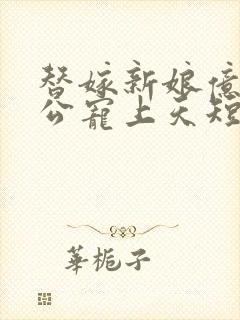 替嫁新娘億
公寵上天短
華梔子